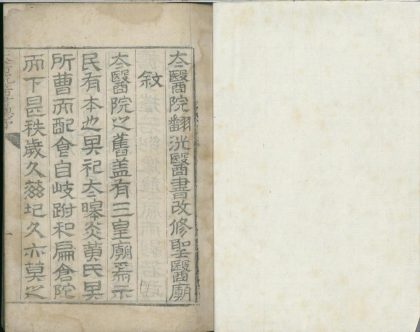 太醫院翻洗醫書改修聖醫廟
敘
太醫院之舊蓋有三皇廟焉示
民有本也其祀太皞炎黃氏其
所曹而配食自岐跗和扁倉陀
而下是秩歲久茲圮久亦莫之